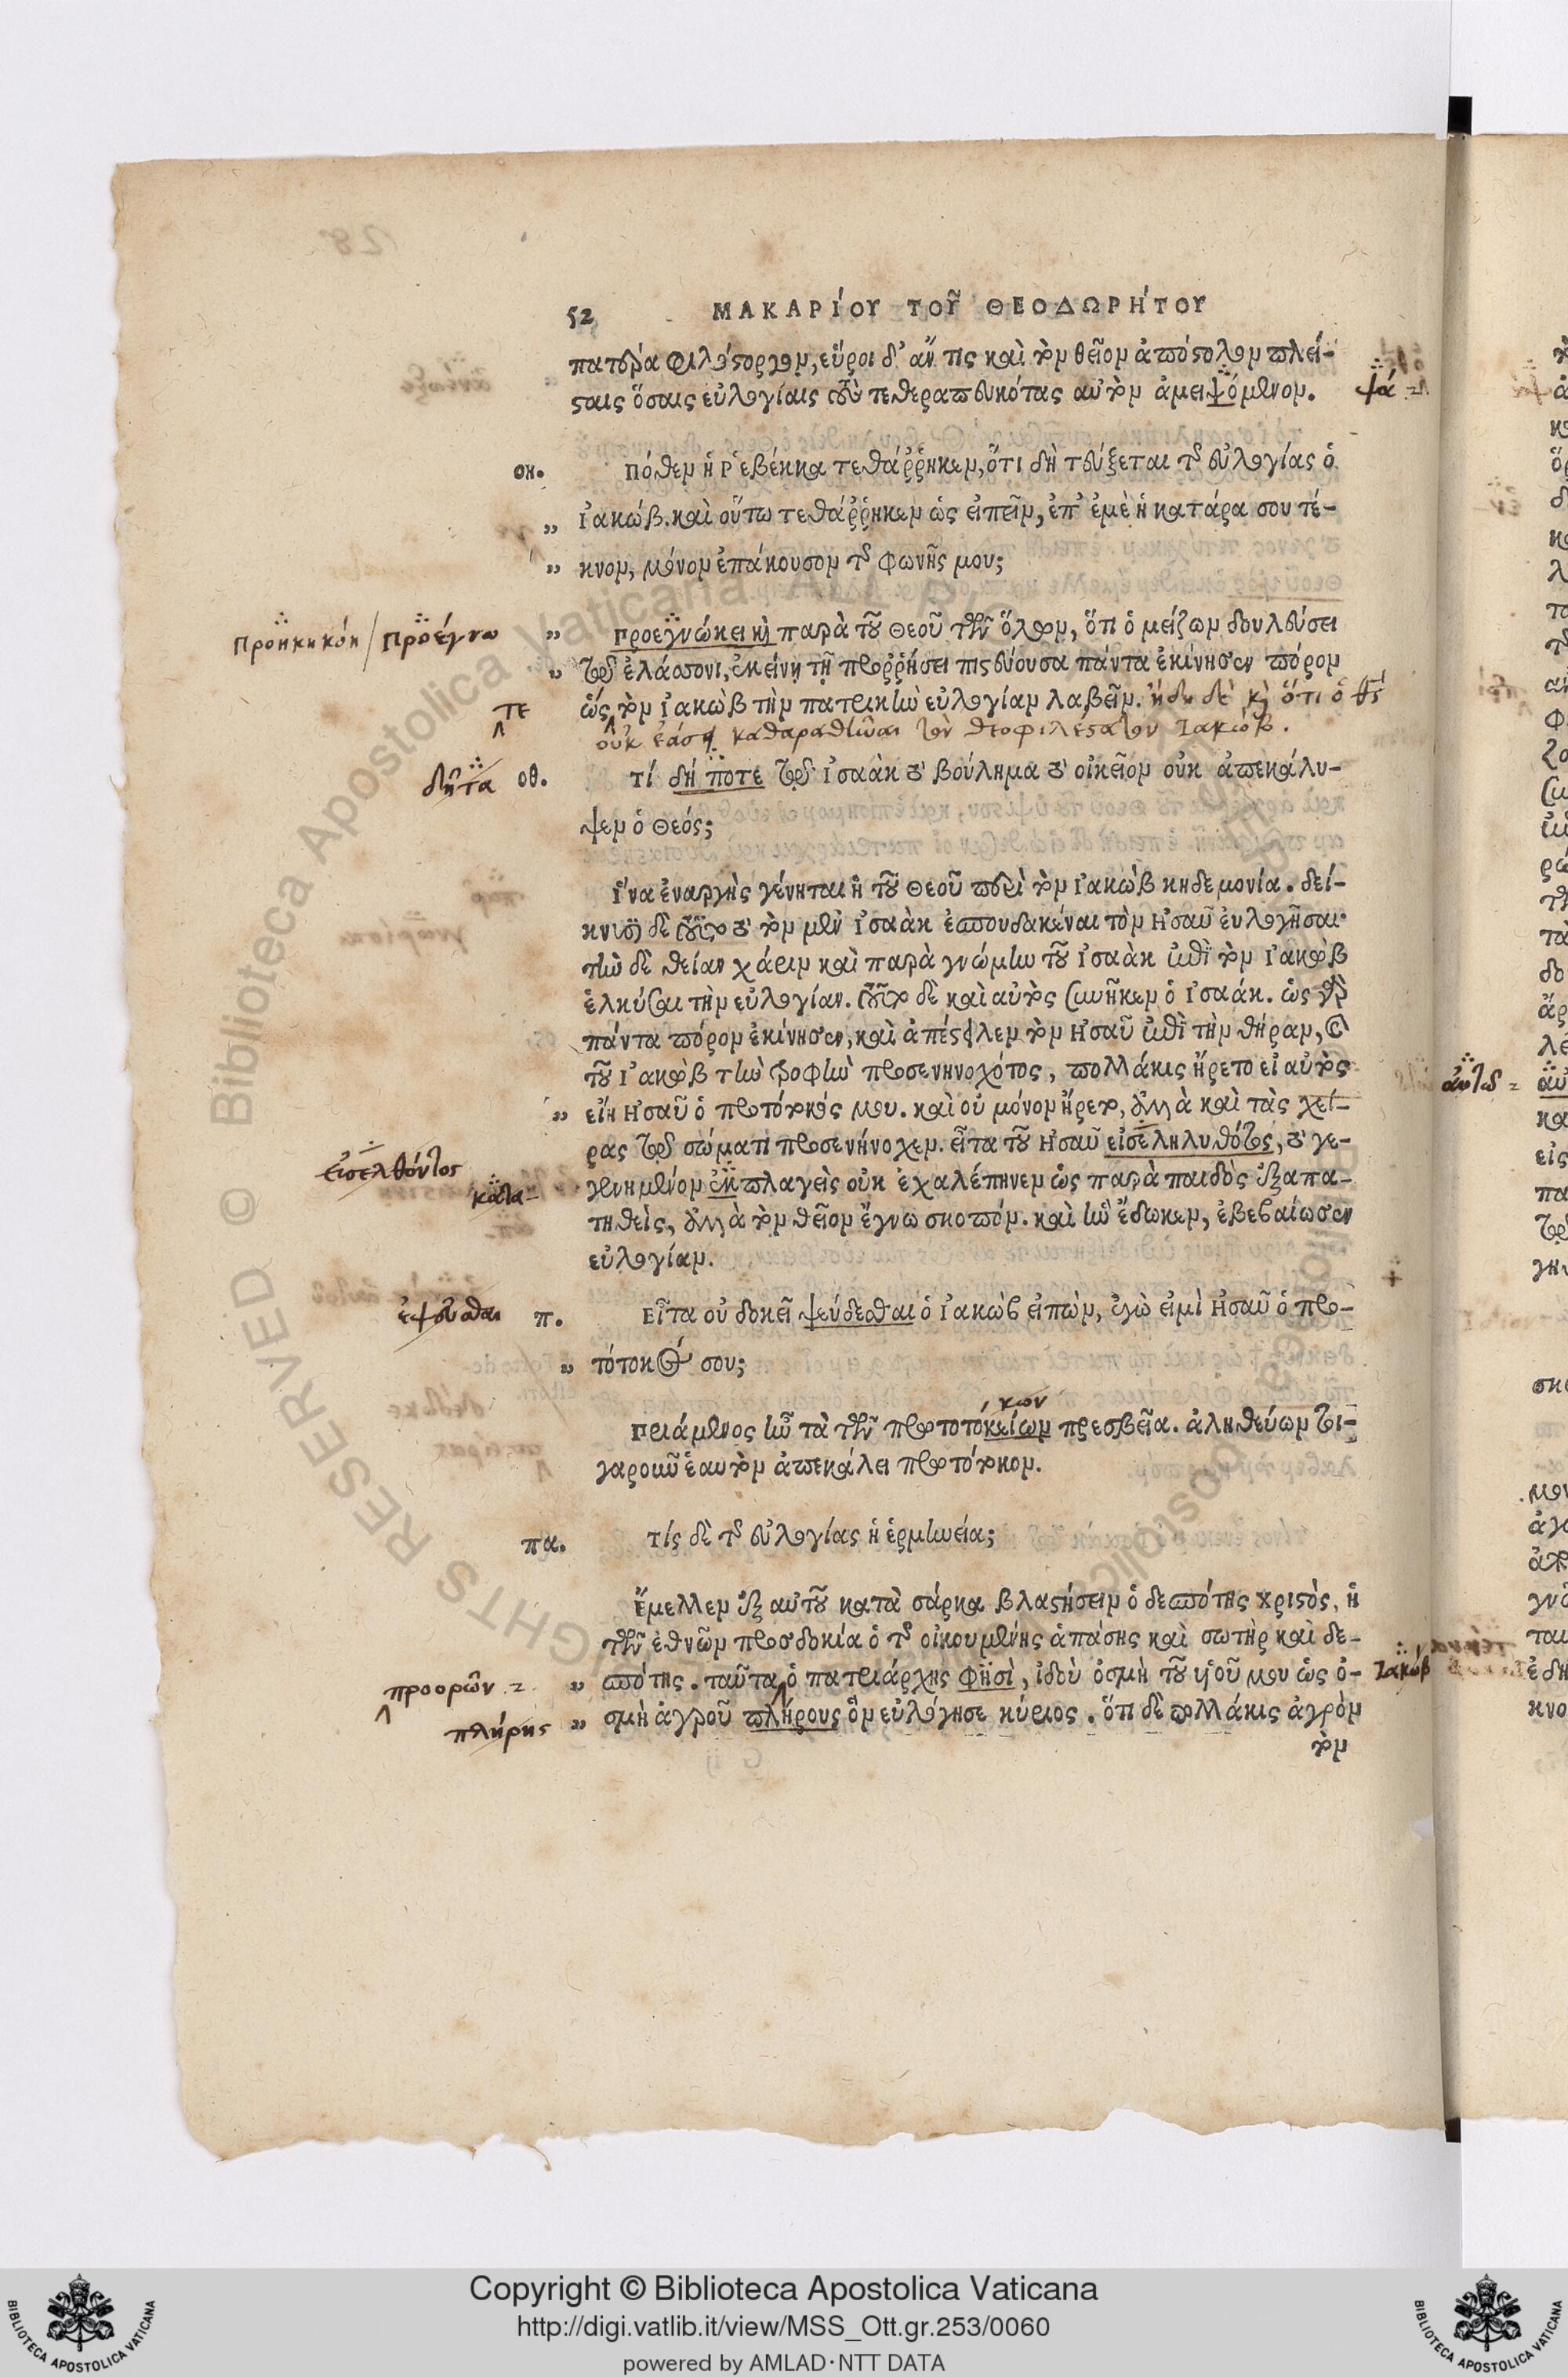 52 ΜΑΚΑΡΙΟΥ ΤΟῦ ΘΕΟΔΩΡΗΤΟΥ
πατέρα φιλόστοργον, εὕροι δ' ἄν τις καὶ τὸν θεῖον ἀπόστολον πλεί-
σταις ὅσαις εὐλογίαις τοὺς τεθεραπευκότας αὐτὸν ἀμειψόμενον.
ψά
οη. Πόθεν ἡ Ρ῾εβέκκα τεθάῤῥηκεν, ὅτι δὴ τεύξεται τῆς εὐλογίας ὁ
„ Ι᾿ακώβ. καὶ οὕτω τεθάῤῥηκεν ὡς εἰπεῖν, ἐπ' ἐμὲ ἡ κατάρα σου τέ-
„ κνον, μόνον ἐπάκουσον τῆς φωνῆς μου;
προηκηκόη / προέγνω
„ Προεγνώκει καὶ παρὰ τοῦ Θεοῦ τῶν ὅλων, ὅτι ὁ μείζων δουλεύσει
„ τῷ ἐλάσσονι, ἐκείνῃ τῇ προῤῥήσει πιστεύουσα πάντα ἐκίνησεν πόρον
τε
ὥς τὸν Ι᾿ακὼβ τὴν πατρικὴν εὐλογίαν λαβεῖν. ᾔδει δὲ καὶ ὅτι ὁ θς
οὐκ ἐάσῃ καθαραθῆναι τὸν θεοφιλέστατον Ἰακώβ.
δῆτα
οθ. Τί δή ποτε τῷ Ι᾿σαὰκ τὸ βούλημα τὸ οἰκεῖον οὐκ ἀπεκάλυ-
ψεν ὁ Θεός;
Ι῞να ἐναργὴς γένηται ἡ τοῦ Θεοῦ περὶ τὸν Ι᾿ακὼβ κηδεμονία. δεί-
κνυσι δὲ τοῦτο τὸ τὸν μὲν Ι᾿σαὰκ ἐσπουδακέναι τὸν Η᾿σαῦ εὐλογῆσαι·
τὴν δὲ θείαν χάριν καὶ παρὰ γνώμην τοῦ Ι᾿σαὰκ ἐπὶ τὸν Ι᾿ακὼβ
ἑλκύσαι τὴν εὐλογίαν. τοῦτο δὲ καὶ αὐτὸς συνῆκεν ὁ Ι᾿σαάκ. ὡς γὰρ
πάντα πόρον ἐκίνησεν, καὶ ἀπέστειλεν τὸν Η᾿σαῦ ἐπὶ τὴν θήραν, καὶ
τοῦ Ι᾿ακὼβ τὴν τροφὴν προσενηνοχότος, πολλάκις ἤρετο εἰ αὐτὸς
„ εἴη Η᾿σαῦ ὁ πρωτότοκός μου. καὶ οὐ μόνον ἤρετο, ἀλλὰ καὶ τὰς χεῖ-
ρας τῷ σώματι προσενήνοχεν. εἶτα τοῦ Η᾿σαῦ εἰσεληλυθότος, τὸ γε-
εἰσελθόντος
κατα-
γενημένον ἐκπλαγεὶς οὐκ ἐχαλέπηνεν ὡς παρὰ παιδὸς ἐξαπα-
τηθεὶς, ἀλλὰ τὸν θεῖον ἔγνω σκοπόν. καὶ ἣν ἔδωκεν, ἐβεβαίωσεν
εὐλογίαν.
ἐψεῦσθαι
π. Εἶτα οὐ δοκεῖ ψεύδεσθαι ὁ Ι᾿ακὼβ εἰπὼν, ἐγὼ εἰμὶ Η᾿σαῦ ὁ πρω-
„ τότοκος σου;
κων
Πριάμενος ἦν τὰ τῶν πρωτοτοκείων πρεσβεῖα. ἀληθεύων τοι-
γαροῦν ἑαυτὸν ἀπεκάλει πρωτότοκον.
πα. Τίς δὲ τῆς εὐλογίας ἡ ἑρμηνεία;
Ε῎μελλεν ἐξ αὐτοῦ κατὰ σάρκα βλαστήσειν ὁ δεσπότης Χριστὸς, ἡ
τῶν ἐθνῶν προσδοκία ὁ τῆς οἰκουμένης ἁπάσης καὶ σωτὴρ καὶ δε-
„ σπότης. ταῦτα ὁ πατριάρχης φησὶ, ἰδοὺ ὀσμὴ τοῦ υἱοῦ μου ὡς ὀ-
Ἰακώβ
προορῶν
„ σμὴ ἀγροῦ πλήρους ὃν εὐλόγησε κύριος. ὅτι δὲ πολλάκις ἀγρὸν
πλήρης
τὸν
Copyright © Biblioteca Apostolica Vaticana
http://digi.vatlib.it/view/MSS_Ott.gr.253/0060
powered by AMLAD·NTT DATA
BIBLIOTECA APOSTOLICA VATICANA
BIBLIOTECA APOSTOLICA VATICANA